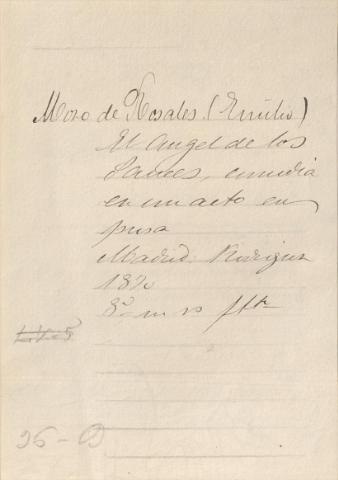 Moro de Rosales (Emilio)
El Angel de los
, comedia
en un acto en
prosa
Madrid: Rodriguez
18
8º
26-D